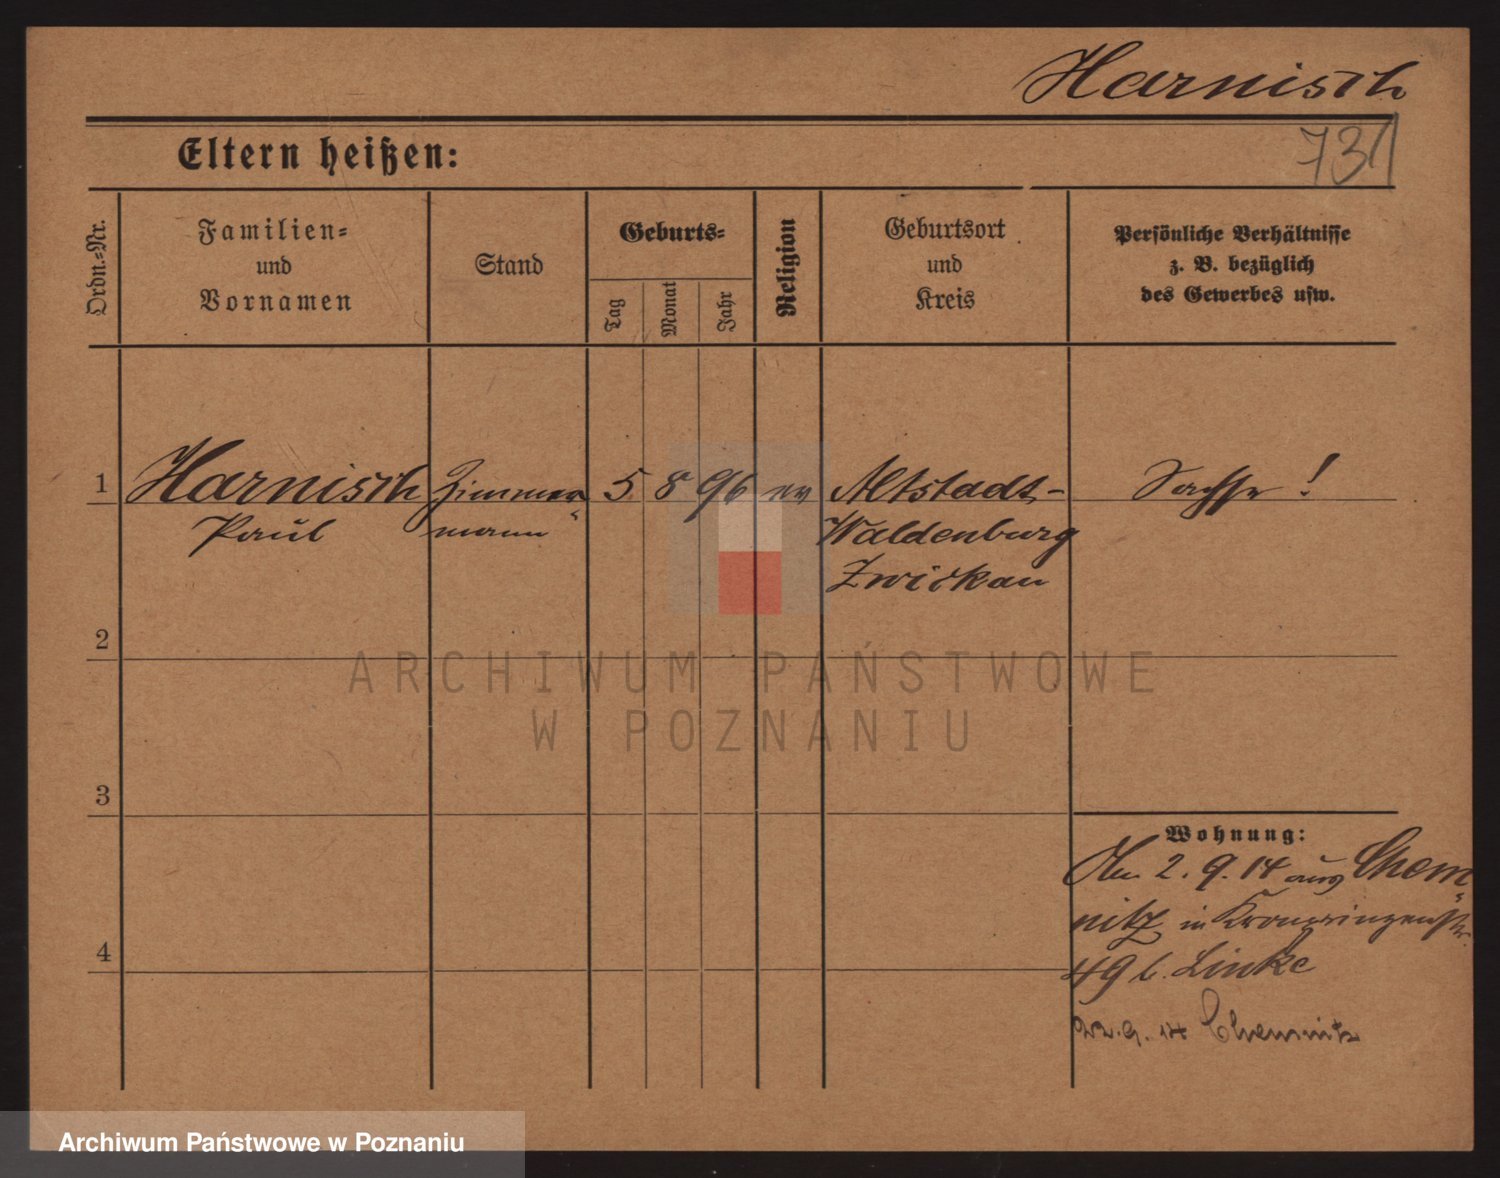 Harnisch
731
Eltern heißen:
Ordn.-Nr.
Familien-
und
Vornamen
Stand
Geburts-
Tag
Monat
Jahr
Religion
Geburtsort
und
Kreis
Persönliche Verhältnisse
z. B. bezüglich
des Gewerbes usw.
1 Harnisch Zimmer- 5 8 96 ev Altstadt- Sachse !
Paul mann Waldenburg
Zwickau
2
3
Wohnung:
2. 9. 14 aus Chem-
nitz in Kronprinzenstr.
4
49 b. Linke
22. 9. 14 Chemnitz
ARCHIWUM PAŃSTWOWE
W POZNANIU
Archiwum Państwowe w Poznaniu